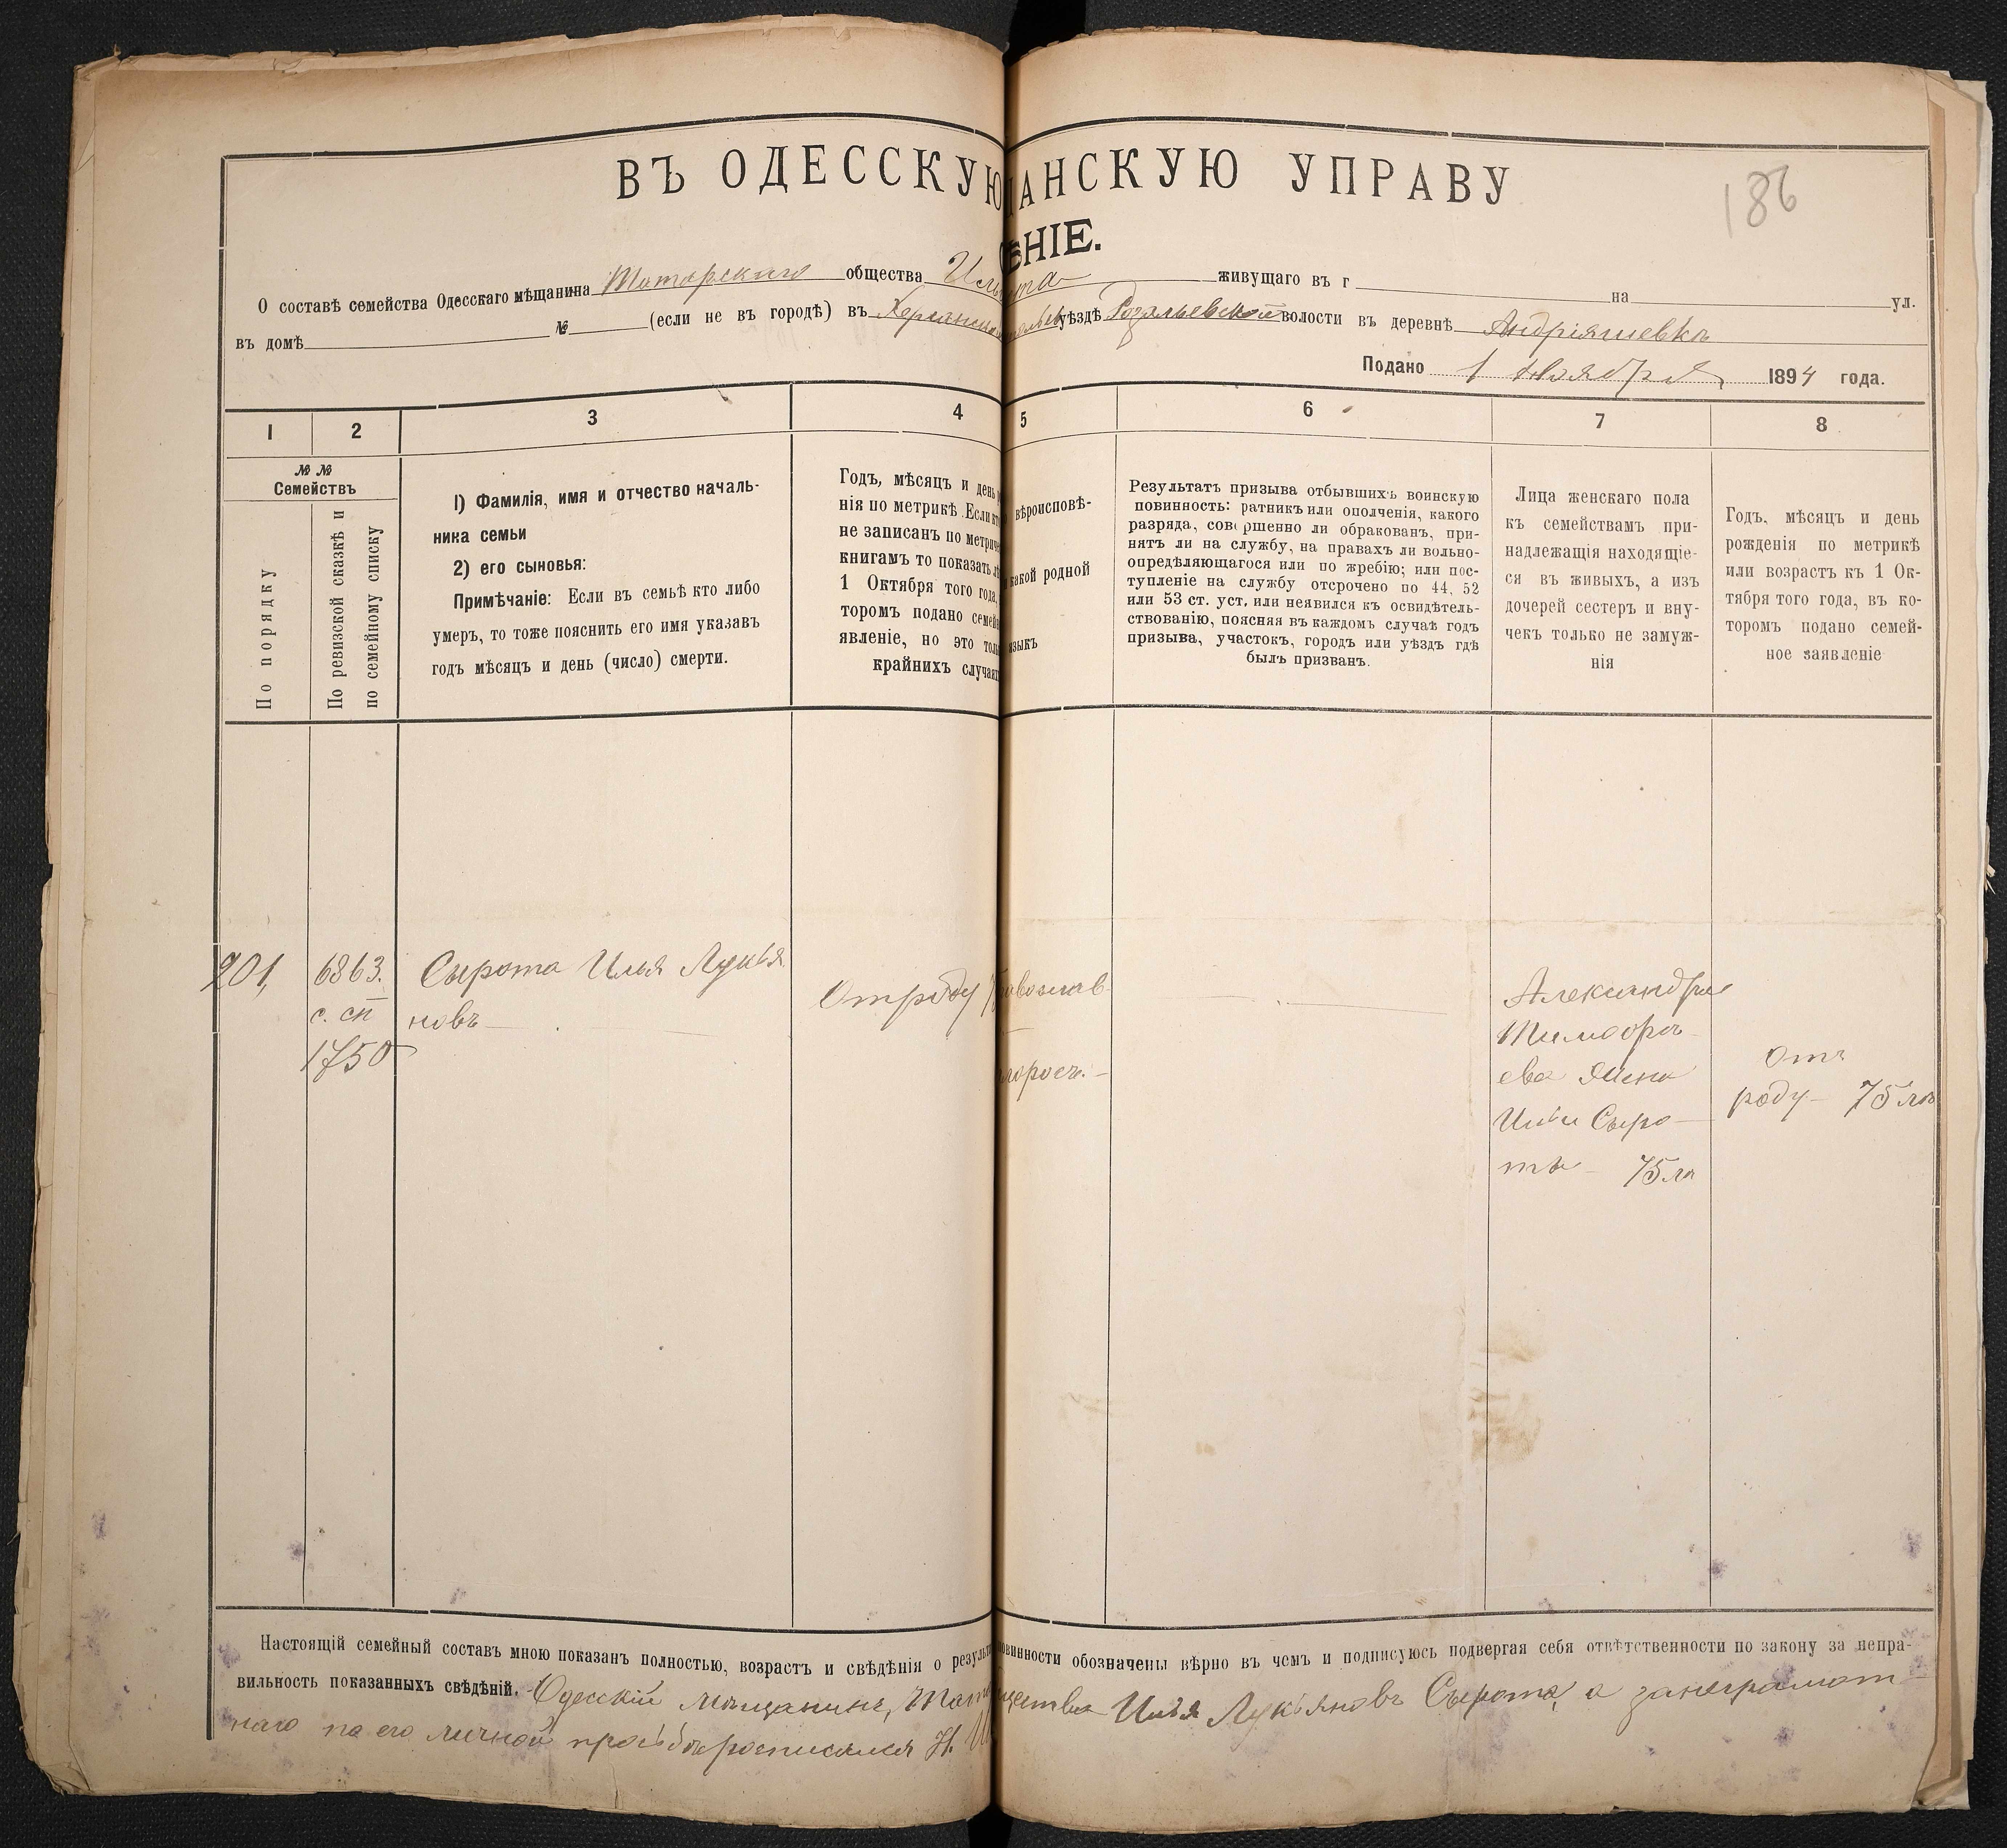 ВЪ ОДЕССКУЮ ... АНСКУЮ УПРАВУ
186
ЕНІЕ.
О составѣ семейства Одесскаго мѣщанина Татарскаго общества живущаго въ г на ул.
въ домѣ № (если не въ городѣ) въ уѣздѣ волости въ деревнѣ Андріяшевкѣ
Подано 1 Ноября 1894 года.
1 2 3 4 5 6 7 8
№ №
Семействъ
По порядку
По ревизской сказкѣ и
по семейному списку
1) Фамилія, имя и отчество началь-
ника семьи
2) его сыновья:
Примѣчаніе: Если въ семьѣ кто либо
умеръ, то тоже пояснить его имя указавъ
годъ мѣсяцъ и день (число) смерти.
Годъ, мѣсяцъ и день
нія по метрикѣ. Если
не записанъ по метриче
книгамъ то показать
1 Октября того года,
торомъ подано семей
явленіе, но это толь
крайнихъ случаях
вѣроисповѣ-
какой родной
языкъ
Результатъ призыва отбывшихъ воинскую
повинность: ратникъ или ополченія, какого
разряда, совершенно ли обракованъ, при-
нятъ ли на службу, на правахъ ли вольно-
опредѣляющагося или по жребію; или пос-
тупленіе на службу отсрочено по 44, 52
или 53 ст. уст. или неявился къ освидѣтель-
ствованію, поясняя въ каждомъ случаѣ годъ
призыва, участокъ, городъ или уѣздъ гдѣ
былъ призванъ.
Лица женскаго пола
къ семействамъ при-
надлежащія находящіе-
ся въ живыхъ, а изъ
дочерей сестеръ и вну-
чекъ только не замуж-
нія
Годъ, мѣсяцъ и день
рожденія по метрикѣ
или возрастъ къ 1 Ок-
тября того года, въ ко-
торомъ подано семей-
ное заявленіе
201,
6863.
с. сп
1750
Сырота Илья Лукья
новъ
Отроду
авослав
лоросъ.
Александра
Тимофѣ
ева Жена
Ильи Сыро
ты 75 лѣ
Отъ
роду 75 лѣ
Настоящій семейный составъ мною показанъ полностью, возрастъ и свѣдѣнія о резуль овинности обозначены вѣрно въ чемъ и подписуюсь подвергая себя отвѣтственности по закону за непра-
вильность показанныхъ свѣдѣній. Одесскій мѣщанинъ, Тат ществa Илья Лукьяновъ Сырота, а занеграмот
наго по его личной просьбѣ росписался Н.